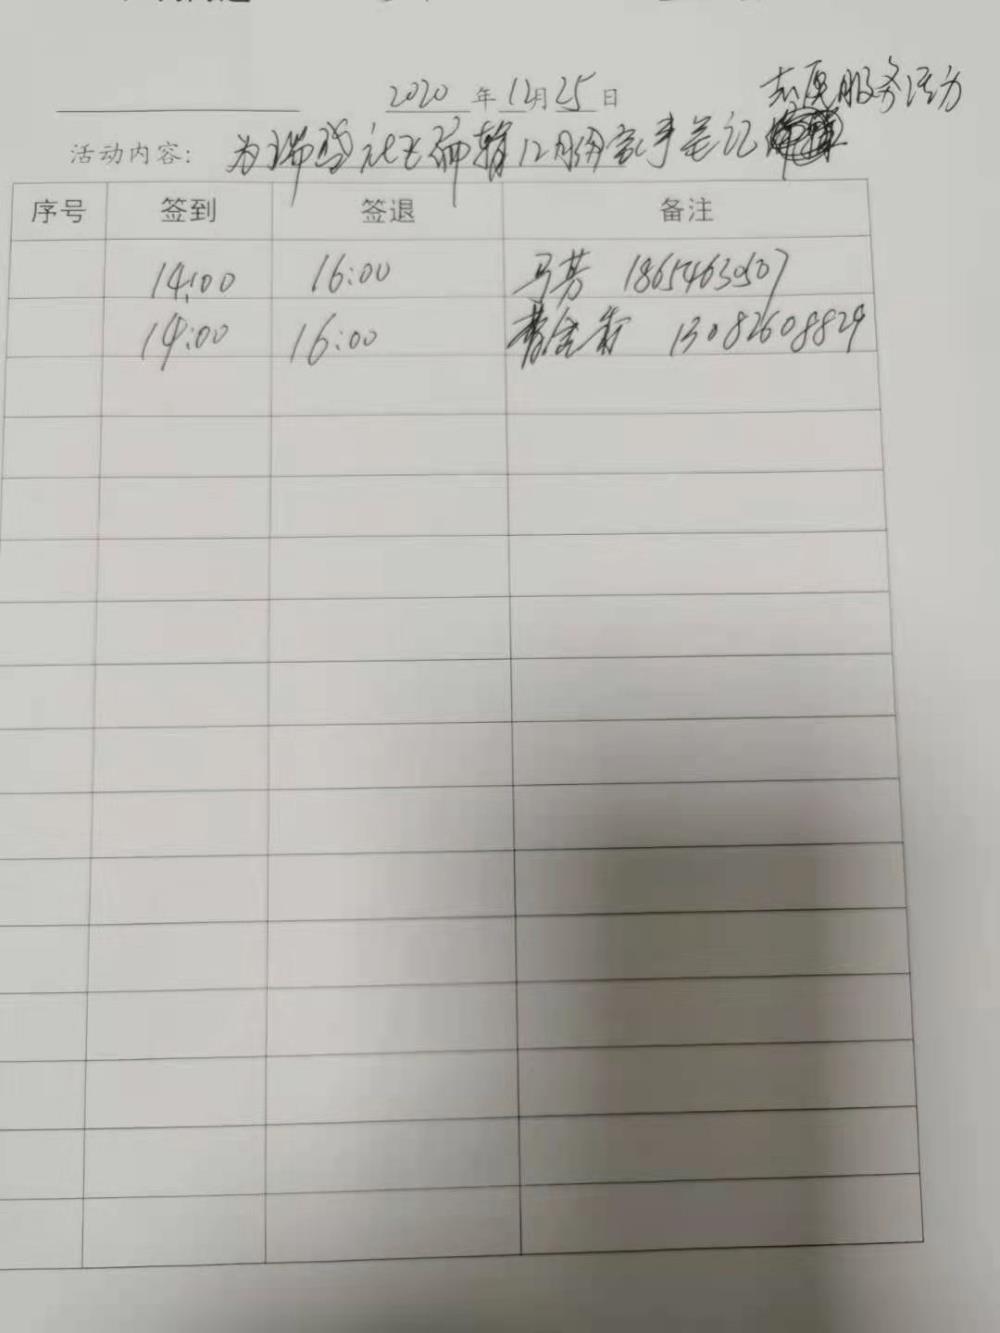 2020 年 12月 25 日
志愿服务活动
活动内容: 为瑞盛社区编辑12月份家事笔记
序号 签到 签退 备注
14:00 16:00 马芳 18654630507
14:00 16:00 13082608829